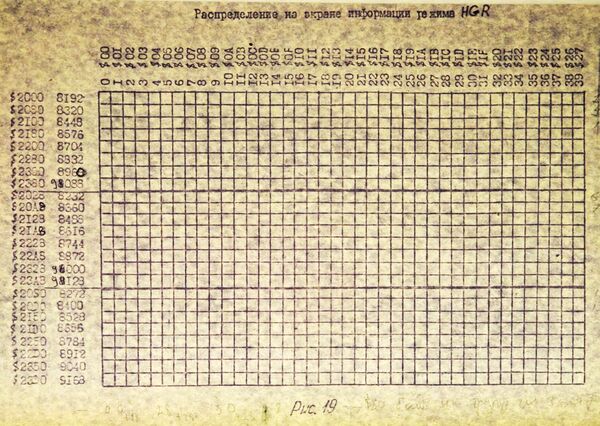 Распределение на экране информации режима HGR
$00 $01 $02 $03 $04 $05 $06 $07 $08 $09 $0A $0B $0C $0D $0E $0F $10 $11 $12 $13 $14 $15 $16 $17 $18 $19 $1A $1B $1C $1D $1E $1F $20 $21 $22 $23 $24 $25 $26 $27
0 1 2 3 4 5 6 7 8 9 10 11 12 13 14 15 16 17 18 19 20 21 22 23 24 25 26 27 28 29 30 31 32 33 34 35 36 37 38 39
$2000 8192
$2080 8320
$2100 8448
$2180 8576
$2200 8704
$2280 8832
$2300 8960
$2380 9088
$2028 8232
$20A8 8360
$2128 8488
$21A8 8616
$2228 8744
$22A8 8872
$2328 9000
$23A8 9128
$2050 8272
$20D0 8400
$2150 8528
$21D0 8656
$2250 8784
$22D0 8912
$2350 9040
$23D0 9168
Рис. 19